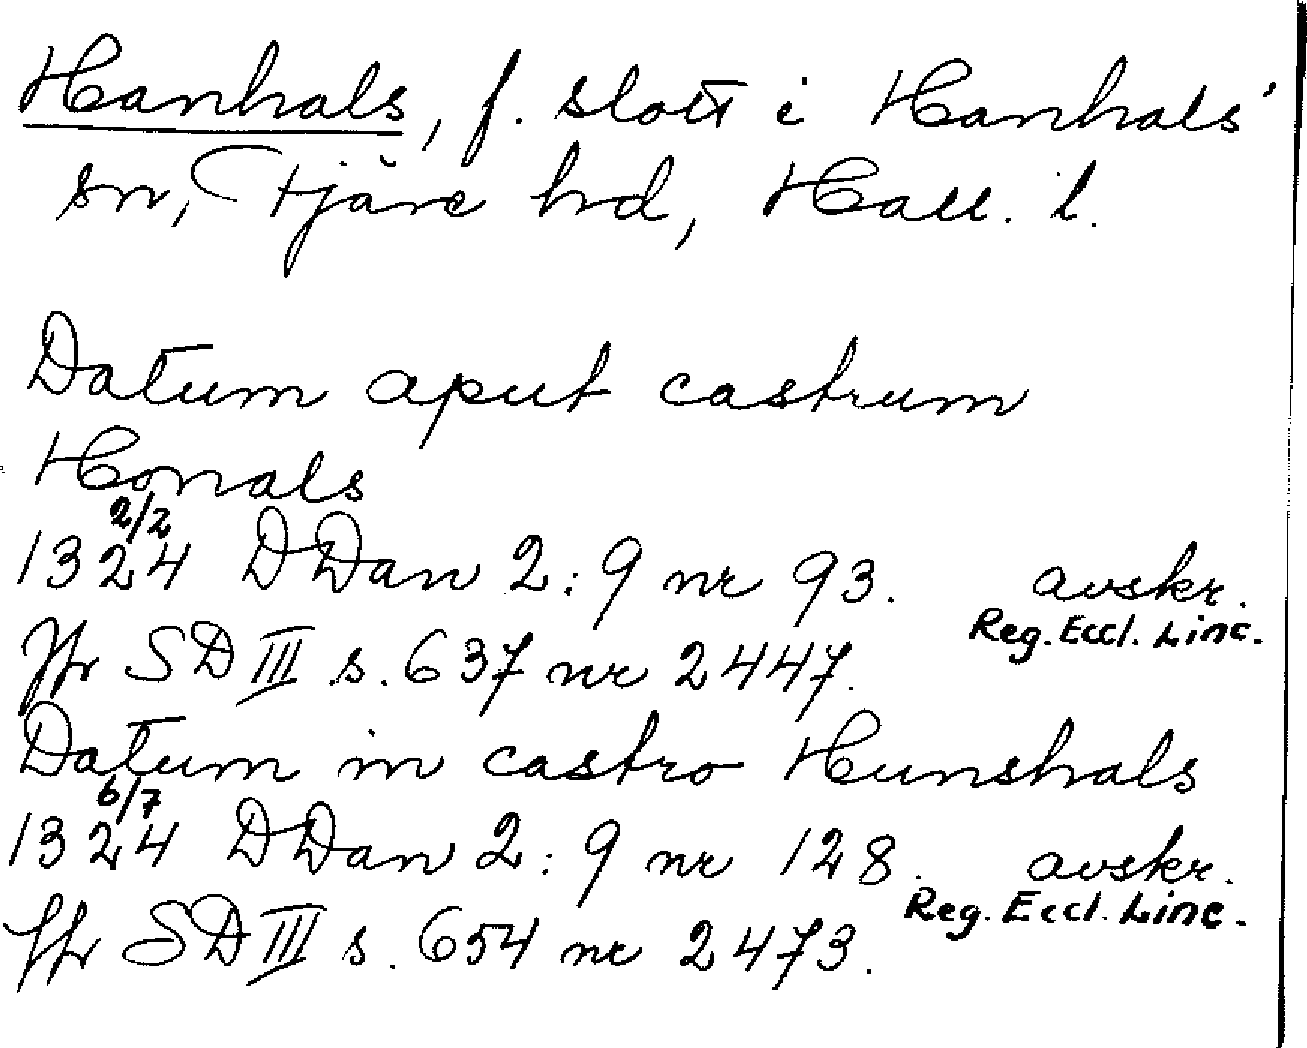 Hanhals, f. slott i Hanhals'
sn, Fjäre hd, Hall. l.
Datum aput castrum
Honals
2/2
1324 DDan 2:9 nr 93. avskr.
Reg. Eccl. Linc.
Jfr SD III s. 637 nr 2447.
Datum in castro Hunshals
6/7
1324 DDan 2:9 nr 128. avskr.
Reg. Eccl. Linc.
Jfr SD III s. 654 nr 2473.